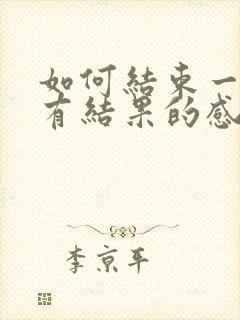 如何結束一
有結果的感
李京平